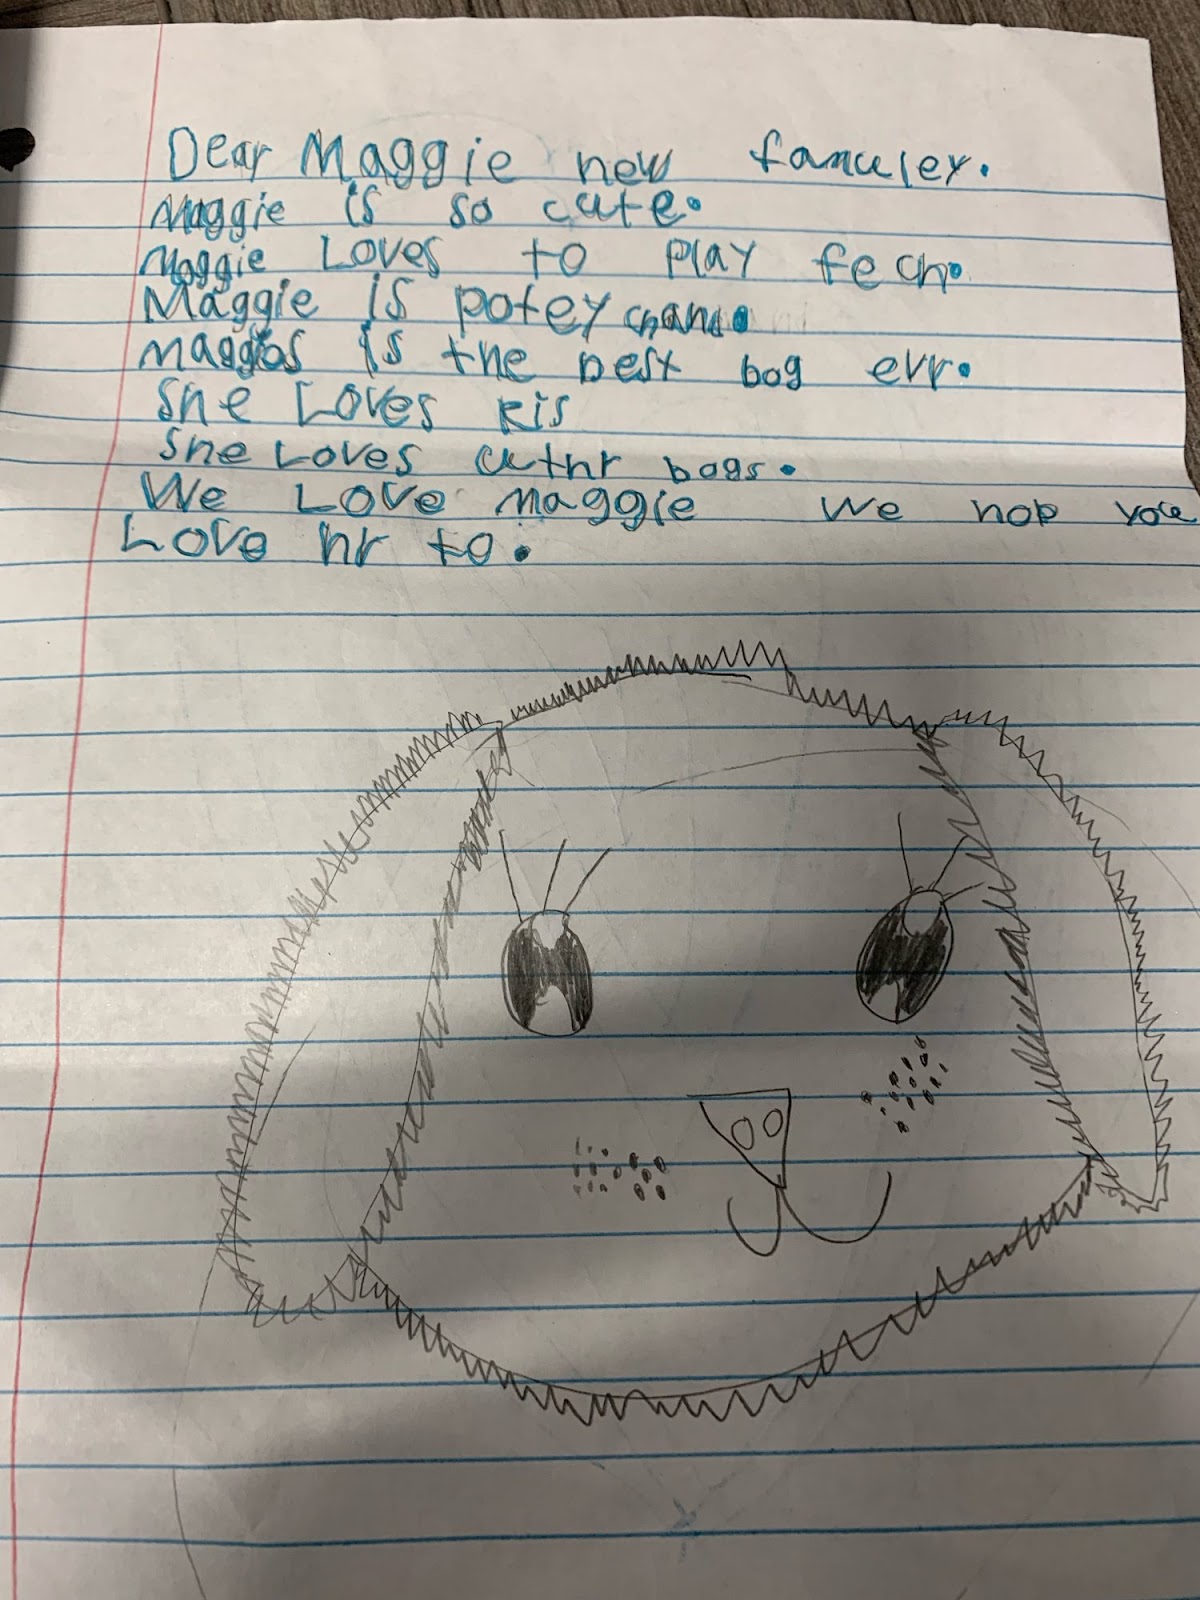 Dear Maggie new famuley.
Maggie is so cute.
Maggie Loves to play fech.
Maggie is potey
Maggie is the best bog evr.
She Loves kis
She Loves uthr bogs.
We Love Maggie We hop you
Love hr to.